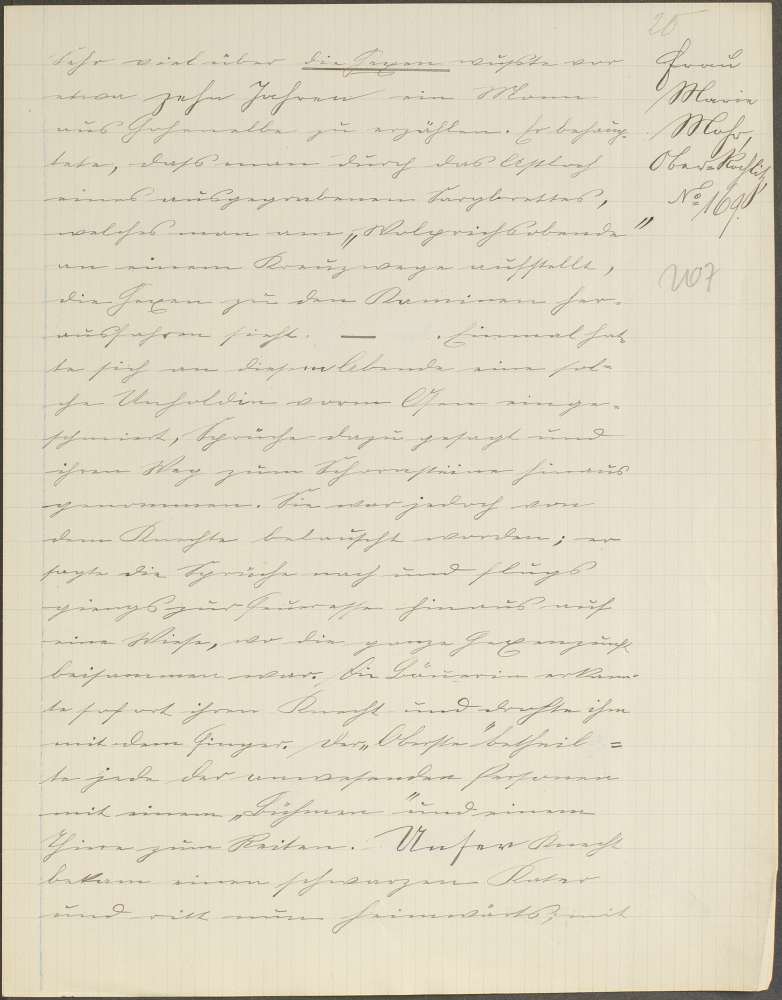 20
Sehr viel über die Hexen wußte vor
etwa zehn Jahren ein Mann
aus Hohenelbe zu erzählen. Er behaup-
tete, dass man durch das Astloch
eines ausgegrabenen Sargbrettes,
welches man am „Wolprichsobende"
an einem Kreuzwege aufstellt,
die Hexen zu den Kaminen her-
ausfahren sieht. — . Einmal hat-
te sich an diesem Abende eine sol-
che Unholdin vorm Ofen einge-
schmiert, Sprüche dazu gesagt und
ihren Weg zum Schornsteine hinaus
genommen. Sie war jedoch von
dem Knechte belauscht worden; er
sagte die Sprüche nach und flugs
giengs zur Feueresse hinaus auf
eine Wiese, wo die ganze Hexenzunft
beisammen war. Die Bäuerin erkann-
te sofort ihren Knecht und drohte ihm
mit dem Finger. Der „Oberste" betheil=
te jede der anwesenden Personen
mit einem „Böhmen" und einem
Thiere zum Reiten. Unser Knecht
bekam einen schwarzen Kater
und ritt nun heimwärts; mit
Frau
Marie
Mohr,
Ober-Rochlitz,
No 169.
207